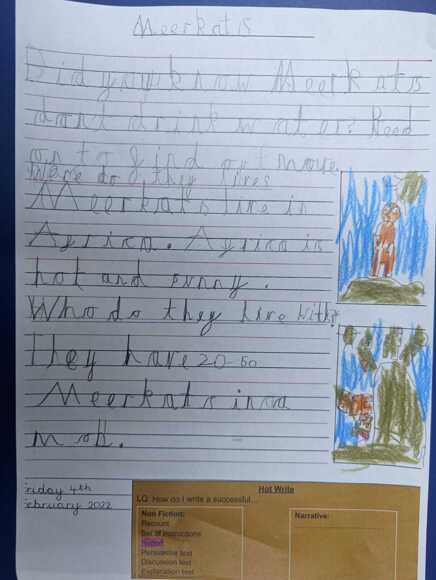 Meerkats
Did you know Meerkats
dont drink water? Read
on to find out more.
Were do they lives
Meerkats live in
Africa. Africa is
hot and sunny.
Who do they live with?
They have 20-50
Meerkats in a
mob.
Friday 4th
February 2022
Hot Write
LQ: How do I write a successful...
Non Fiction:
Recount
Set of instructions
Persuasive text
Discussion text
Explanation text
Narrative: